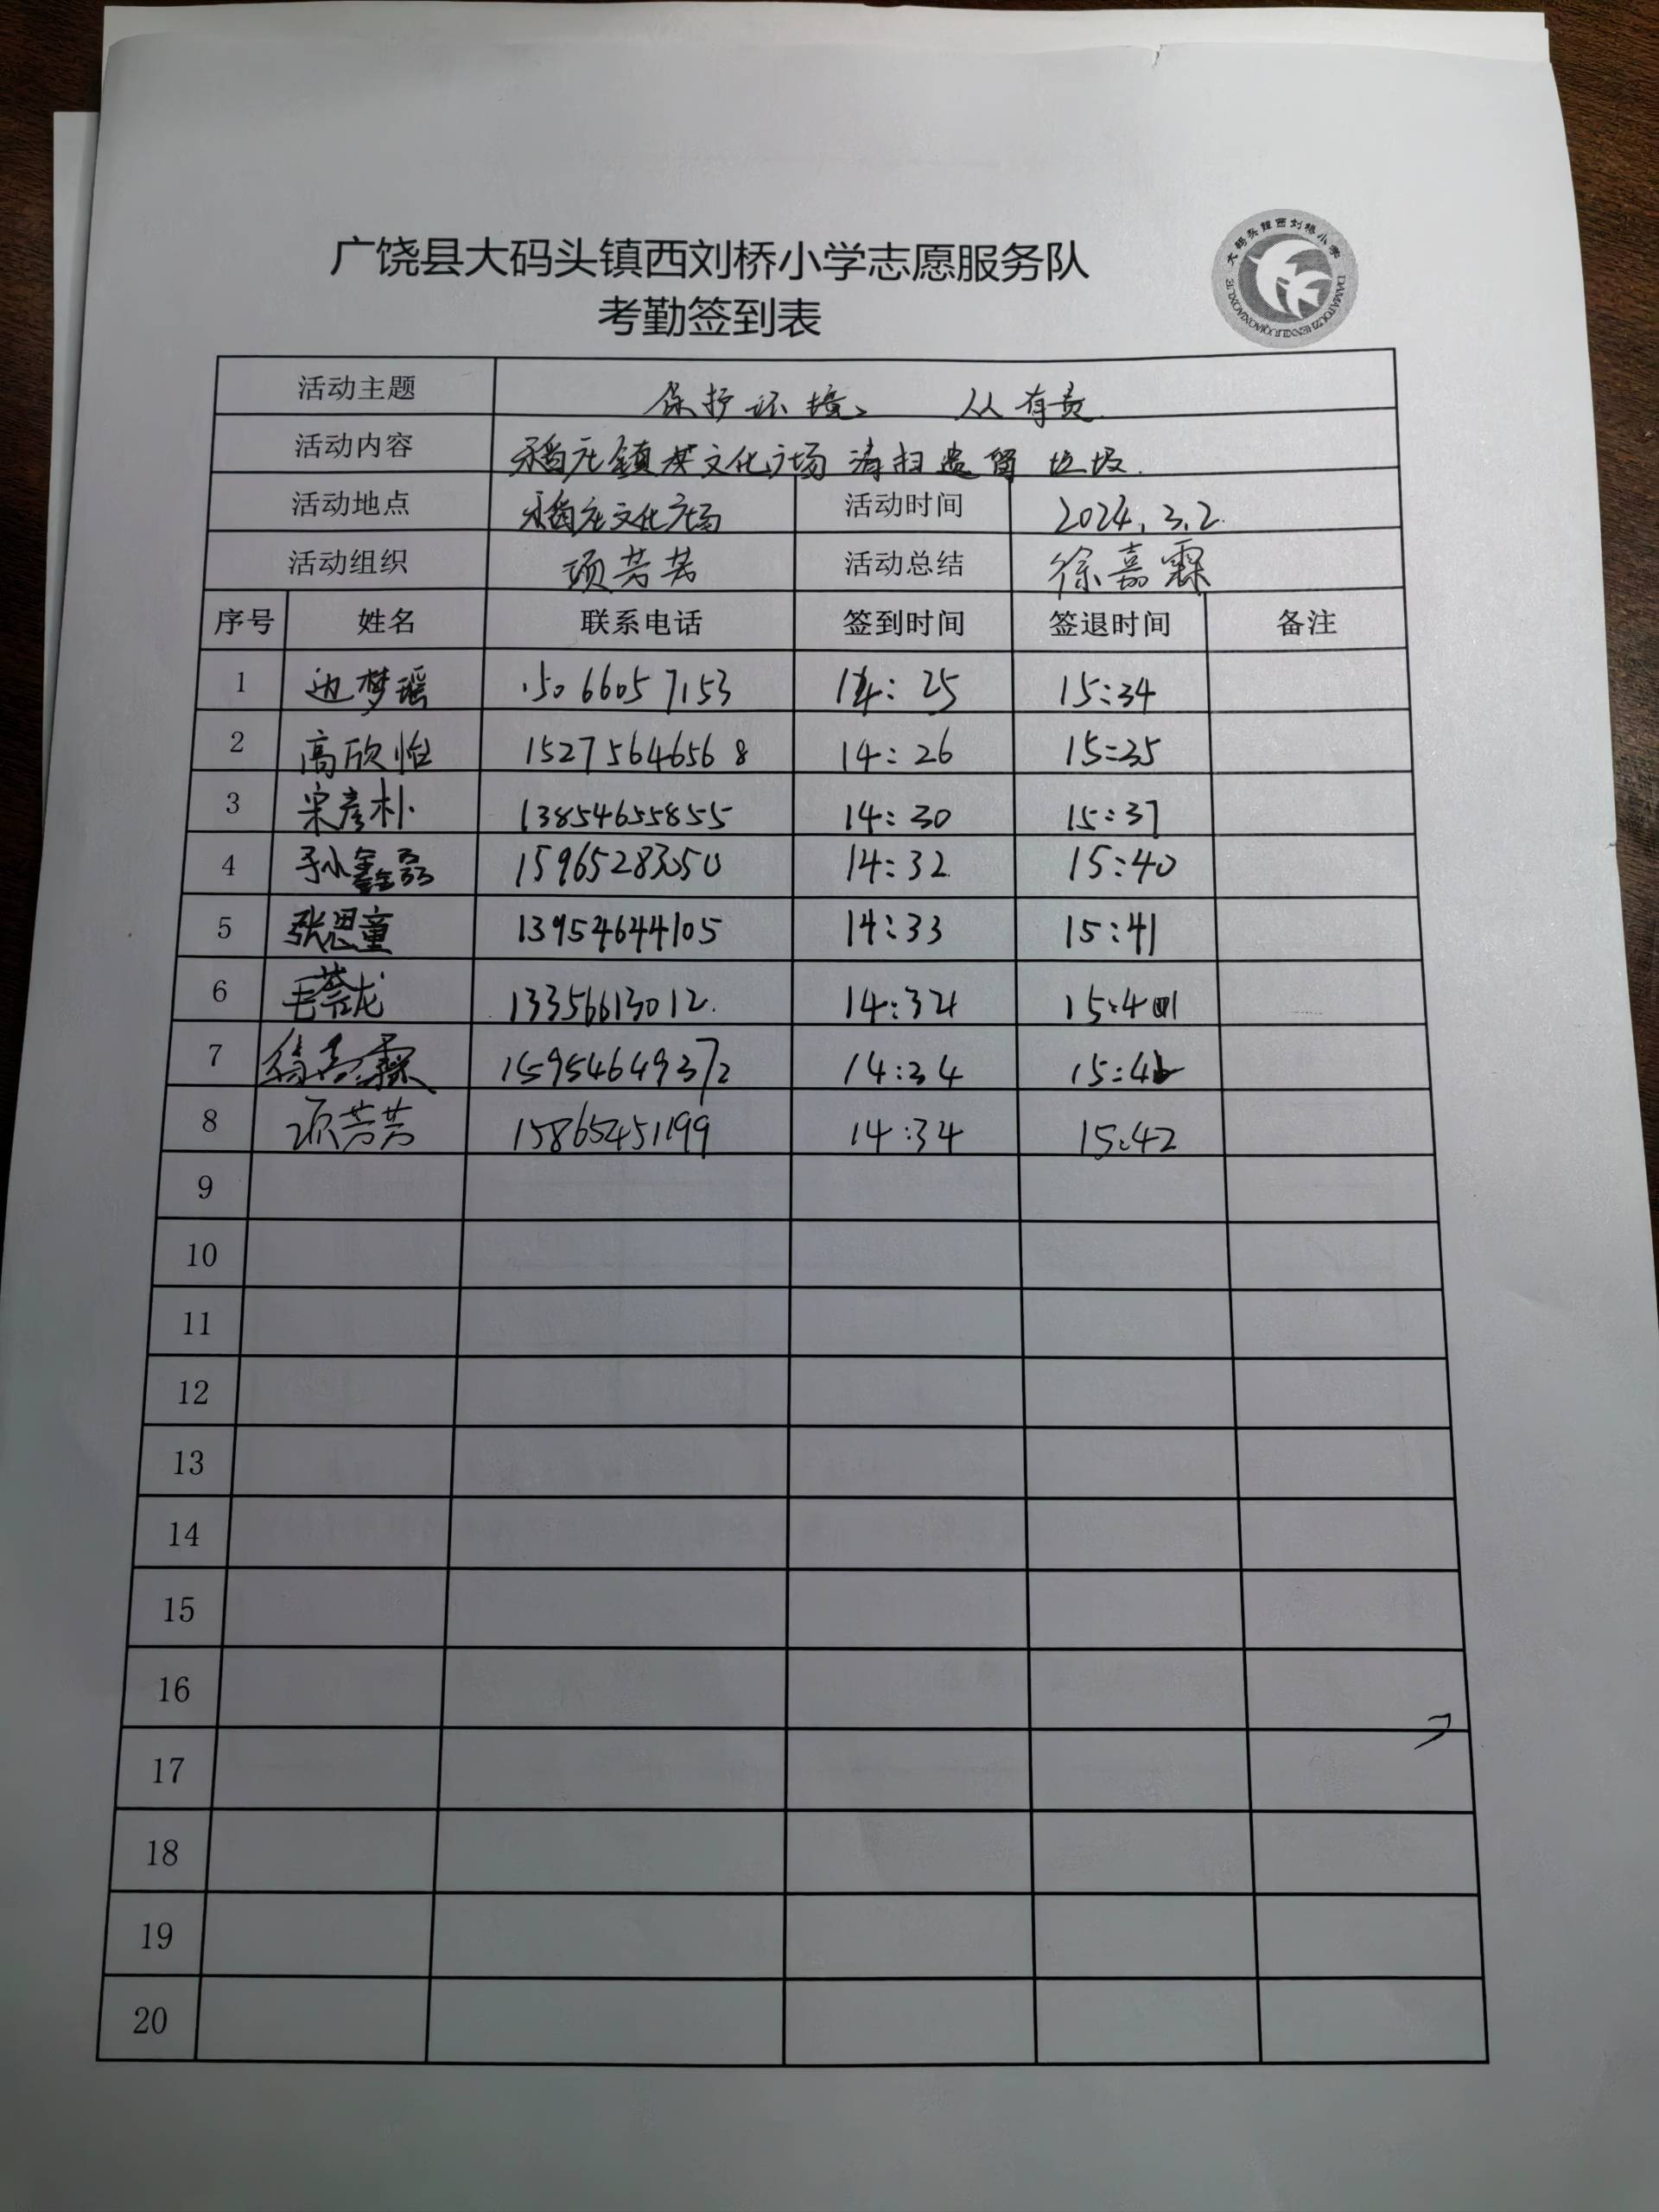 广饶县大码头镇西刘桥小学志愿服务队
考勤签到表
大码头镇西刘桥小学
活动主题 保护环境、 从有责
活动内容 稻庄镇某文化广场清扫遗留垃圾.
活动地点 稻庄文化广场 活动时间 2024.3.2.
活动组织 项芳芳 活动总结 徐嘉霖
序号 姓名 联系电话 签到时间 签退时间 备注
1 边梦瑶 15066057153 14:25 15:34
2 高欣怡 15275646568 14:26 15:35
3 宋彦朴 13854655855 14:30 15:37
4 孙鑫磊 14:32 15:40
5 张思童 13954644105 14:33 15:41
6 13356613012. 14:34
7 徐嘉霖 15954649372 14:34
8 项芳芳 15865451199 14:34 15:42
9
10
11
12
13
14
15
16
17
18
19
20